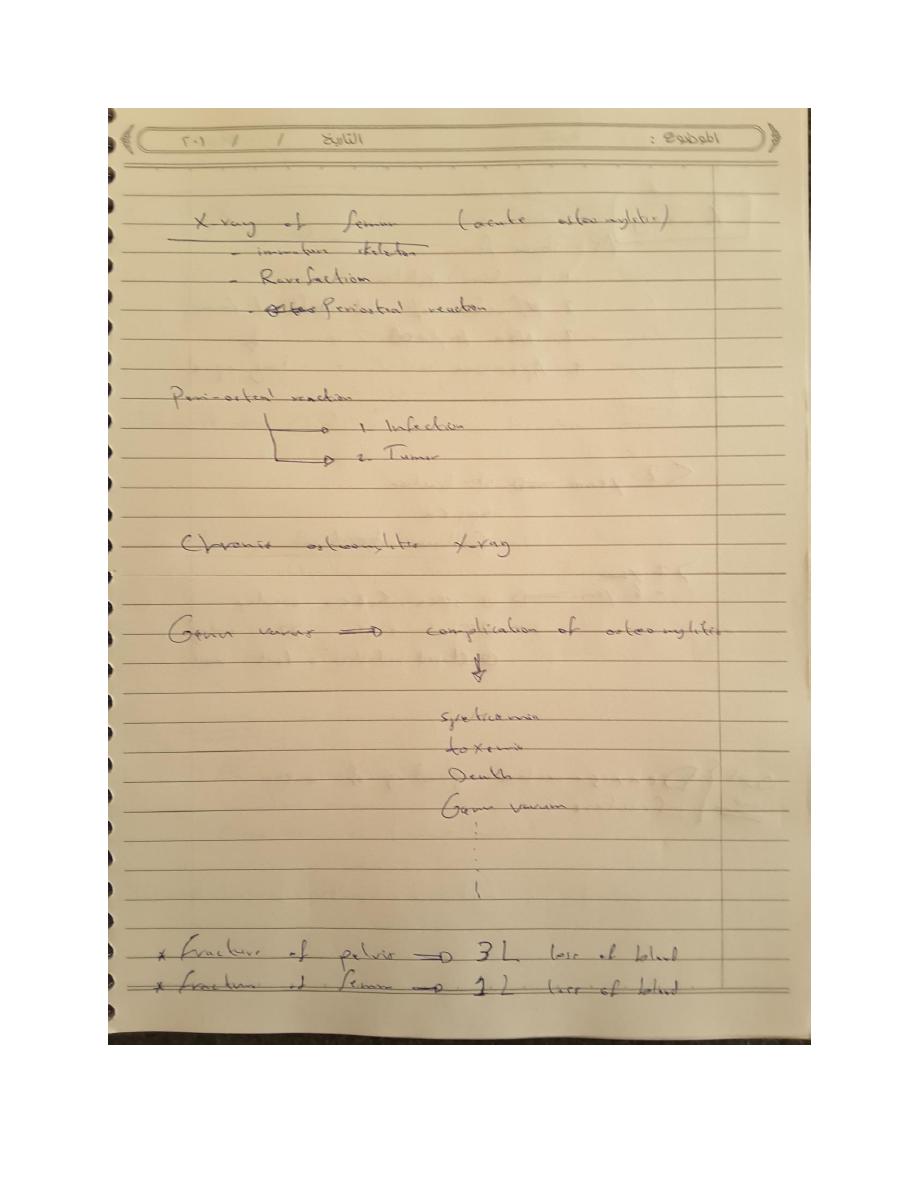 الموضوع : التاريخ / / ٢٠١
X-ray of femur (acute osteomylitis)
- immature skeleton
- Rarefaction
- Periosteal reaction
Peri-osteal reaction
1. Infection
2. Tumor
Chronic osteomylitis X-ray
Genu varus ⇒ complication of osteomylitis
↓
toxemia
Death
Genu varum
* Fracture of pelvis ⇒ 3L loss of blood
* Fracture of femur ⇒ 1L loss of blood